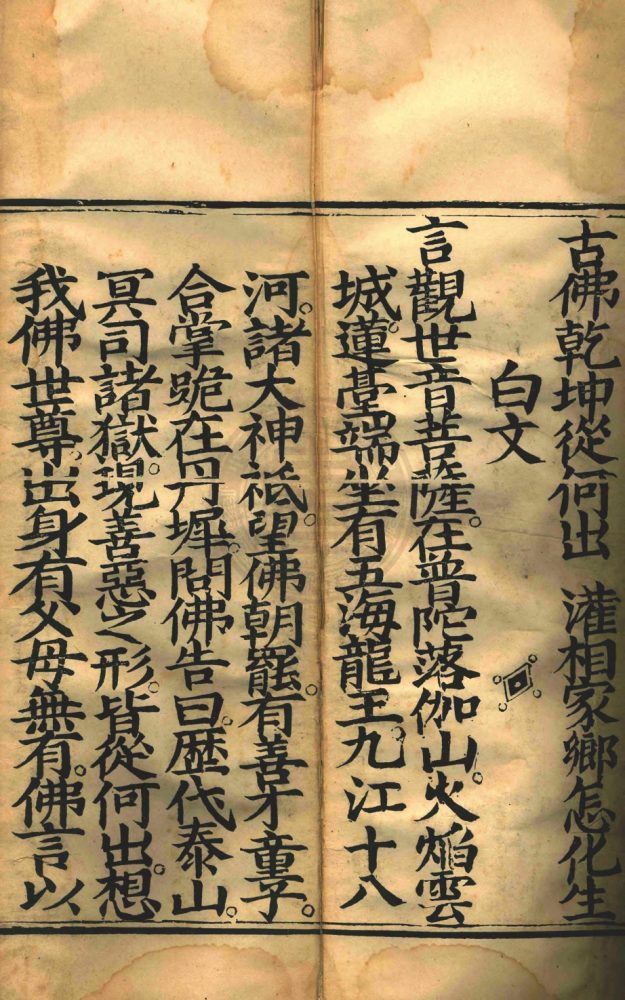 古佛乾坤從何出　灌相家鄉怎化生
白文
言觀世音菩薩在普陀落伽山。火焰雲
城。蓮臺端坐有五海龍王。九江十八
河。諸大神祇望佛朝罷。有善才童子。
合掌跪在丹墀。問佛告曰。歷代泰山。
冥司諸獄。現善惡之形。皆從何出。想
我佛世尊。出身有父母無有。佛言以